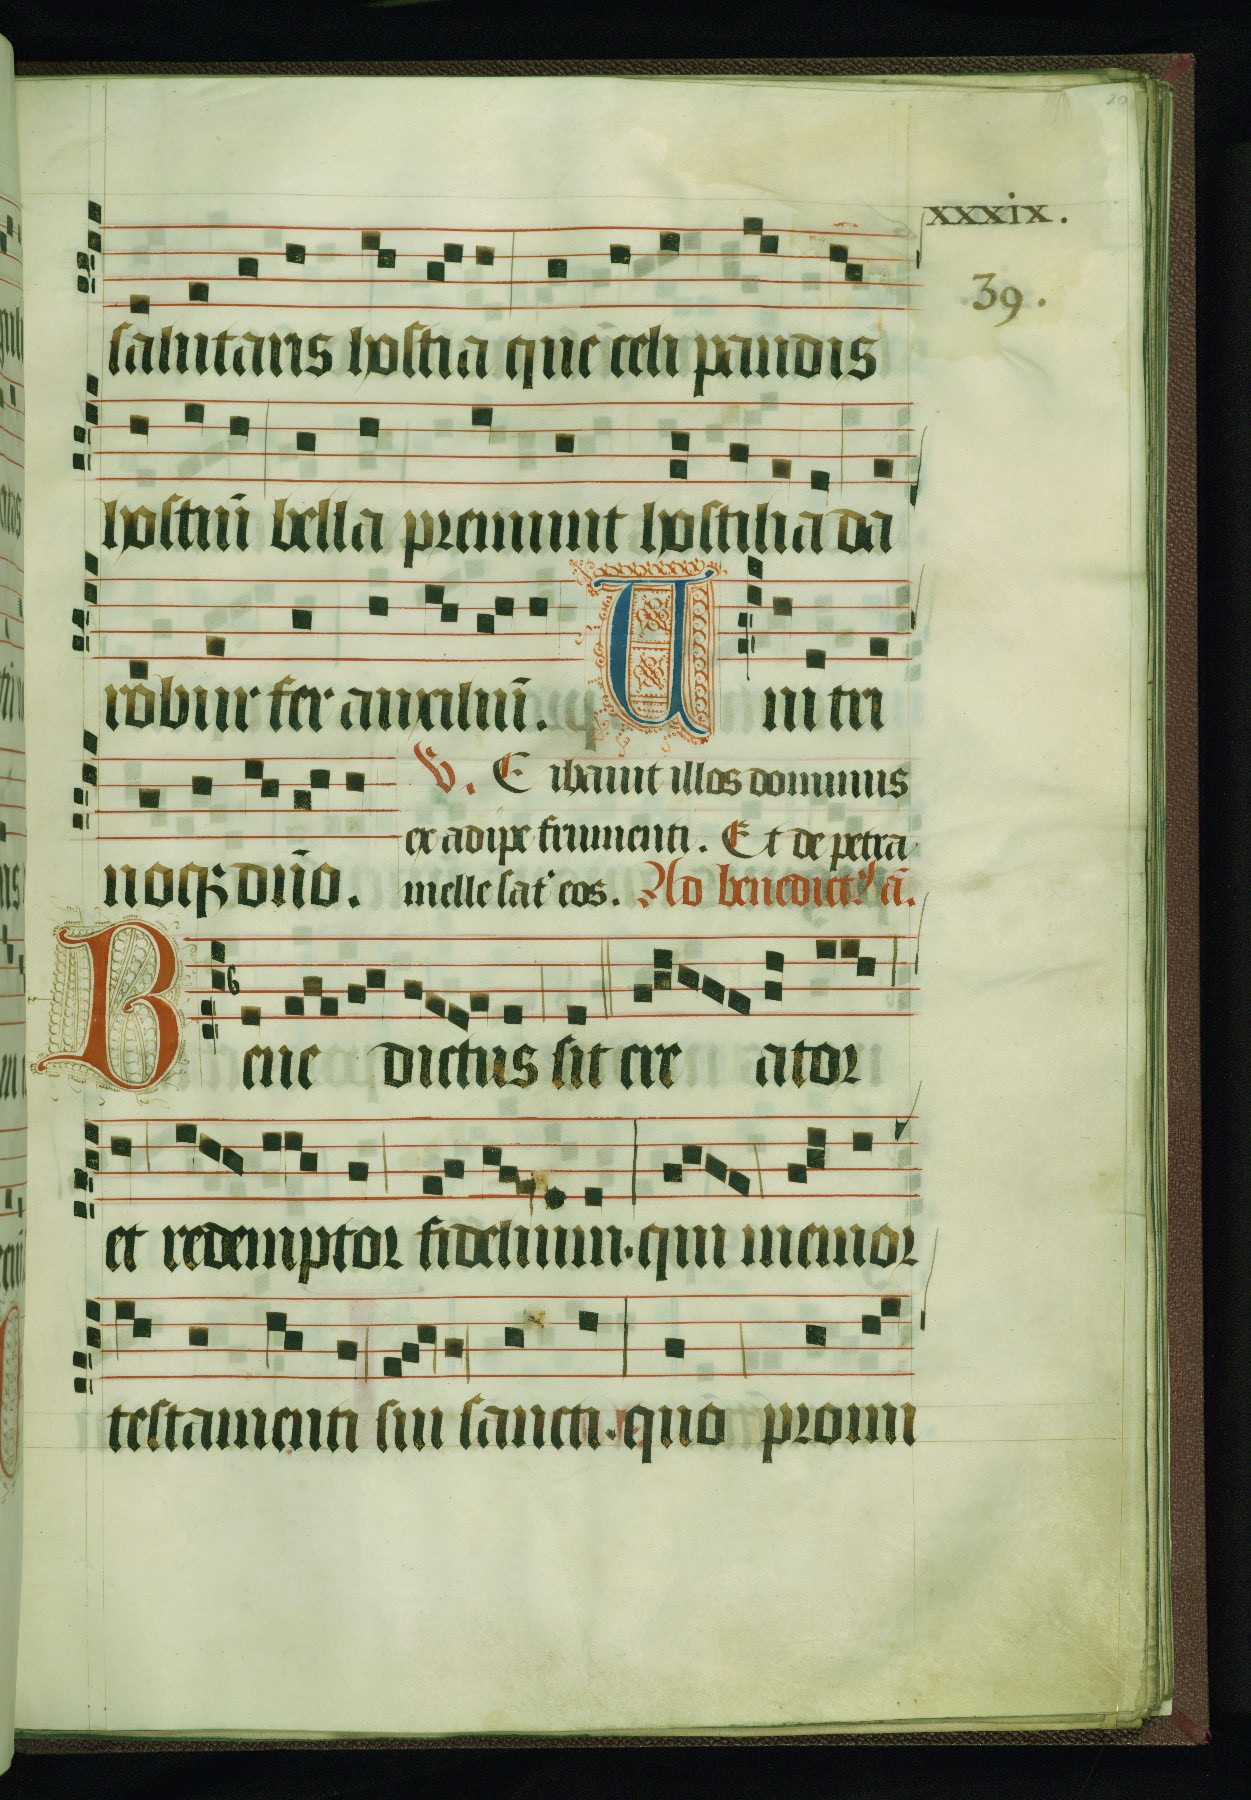 xxxix.
39.
salutaris hostia que celi pandis
hostiū bella premunt hostilia da
robur fer auxiliū. Uni tri
noqꝫ dn̄o. V. Cibauit illos dominus
ex adipe frumenti. Et de petra
melle sat' eos. Ad benedict' ā.
Bene dictus sit cre ator
et redemptor fidelium. qui memor
testamenti sui sancti. quo prom